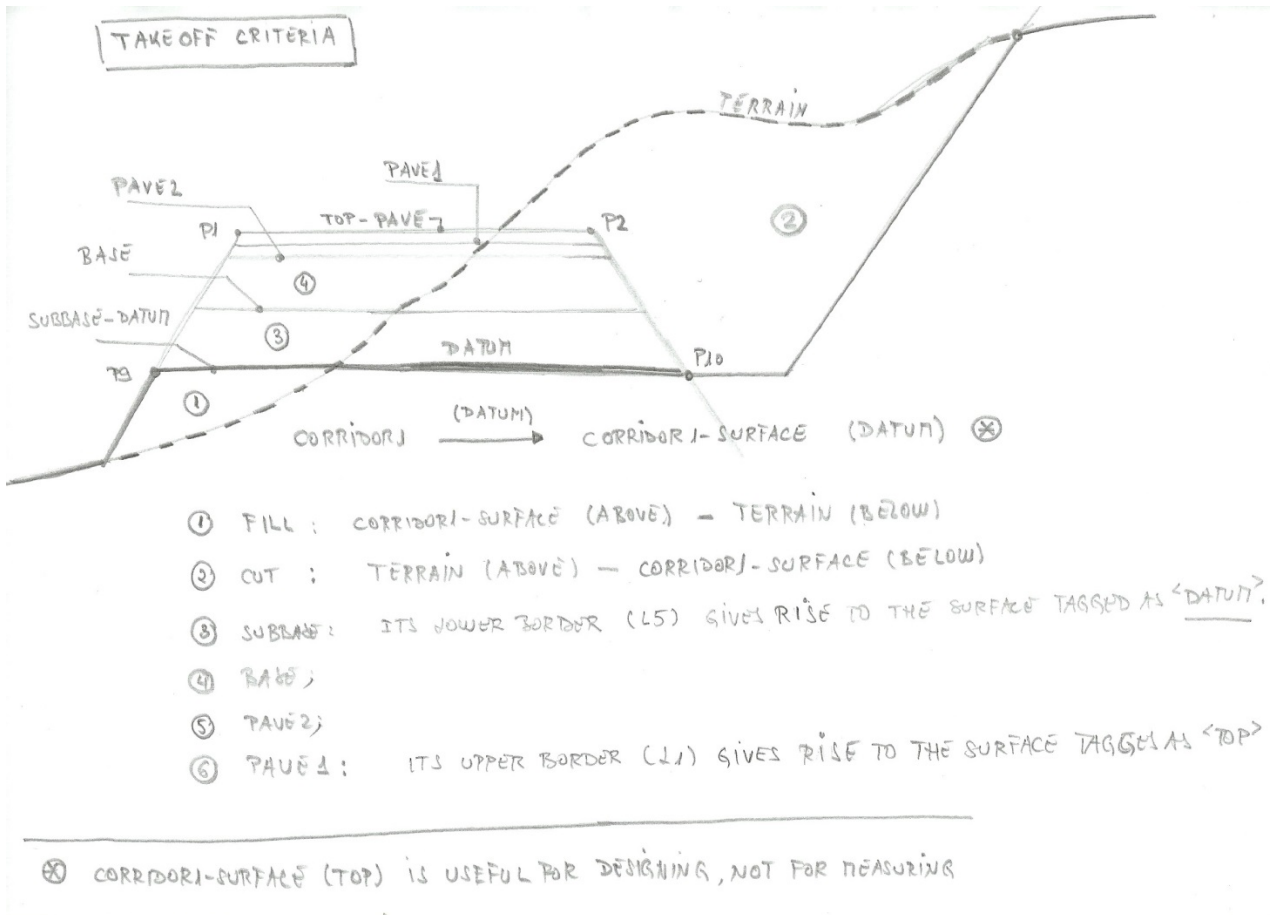 TAKEOFF CRITERIA
TERRAIN
PAVE1
PAVE2
TOP-PAVE
P1
P2
BASE
④
②
SUBBASE-DATUM
③
DATUM
P9
P10
①
CORRIDOR1 (DATUM) CORRIDOR1-SURFACE (DATUM) ⊛
① FILL : CORRIDOR1-SURFACE (ABOVE) - TERRAIN (BELOW)
② CUT : TERRAIN (ABOVE) - CORRIDOR1-SURFACE (BELOW)
③ SUBBASE: ITS LOWER BORDER (L5) GIVES RISE TO THE SURFACE TAGGED AS <DATUM>.
④ BASE;
⑤ PAVE2;
⑥ PAVE1: ITS UPPER BORDER (L1) GIVES RISE TO THE SURFACE TAGGED AS <TOP>
⊛ CORRIDOR1-SURFACE (TOP) IS USEFUL FOR DESIGNING, NOT FOR MEASURING